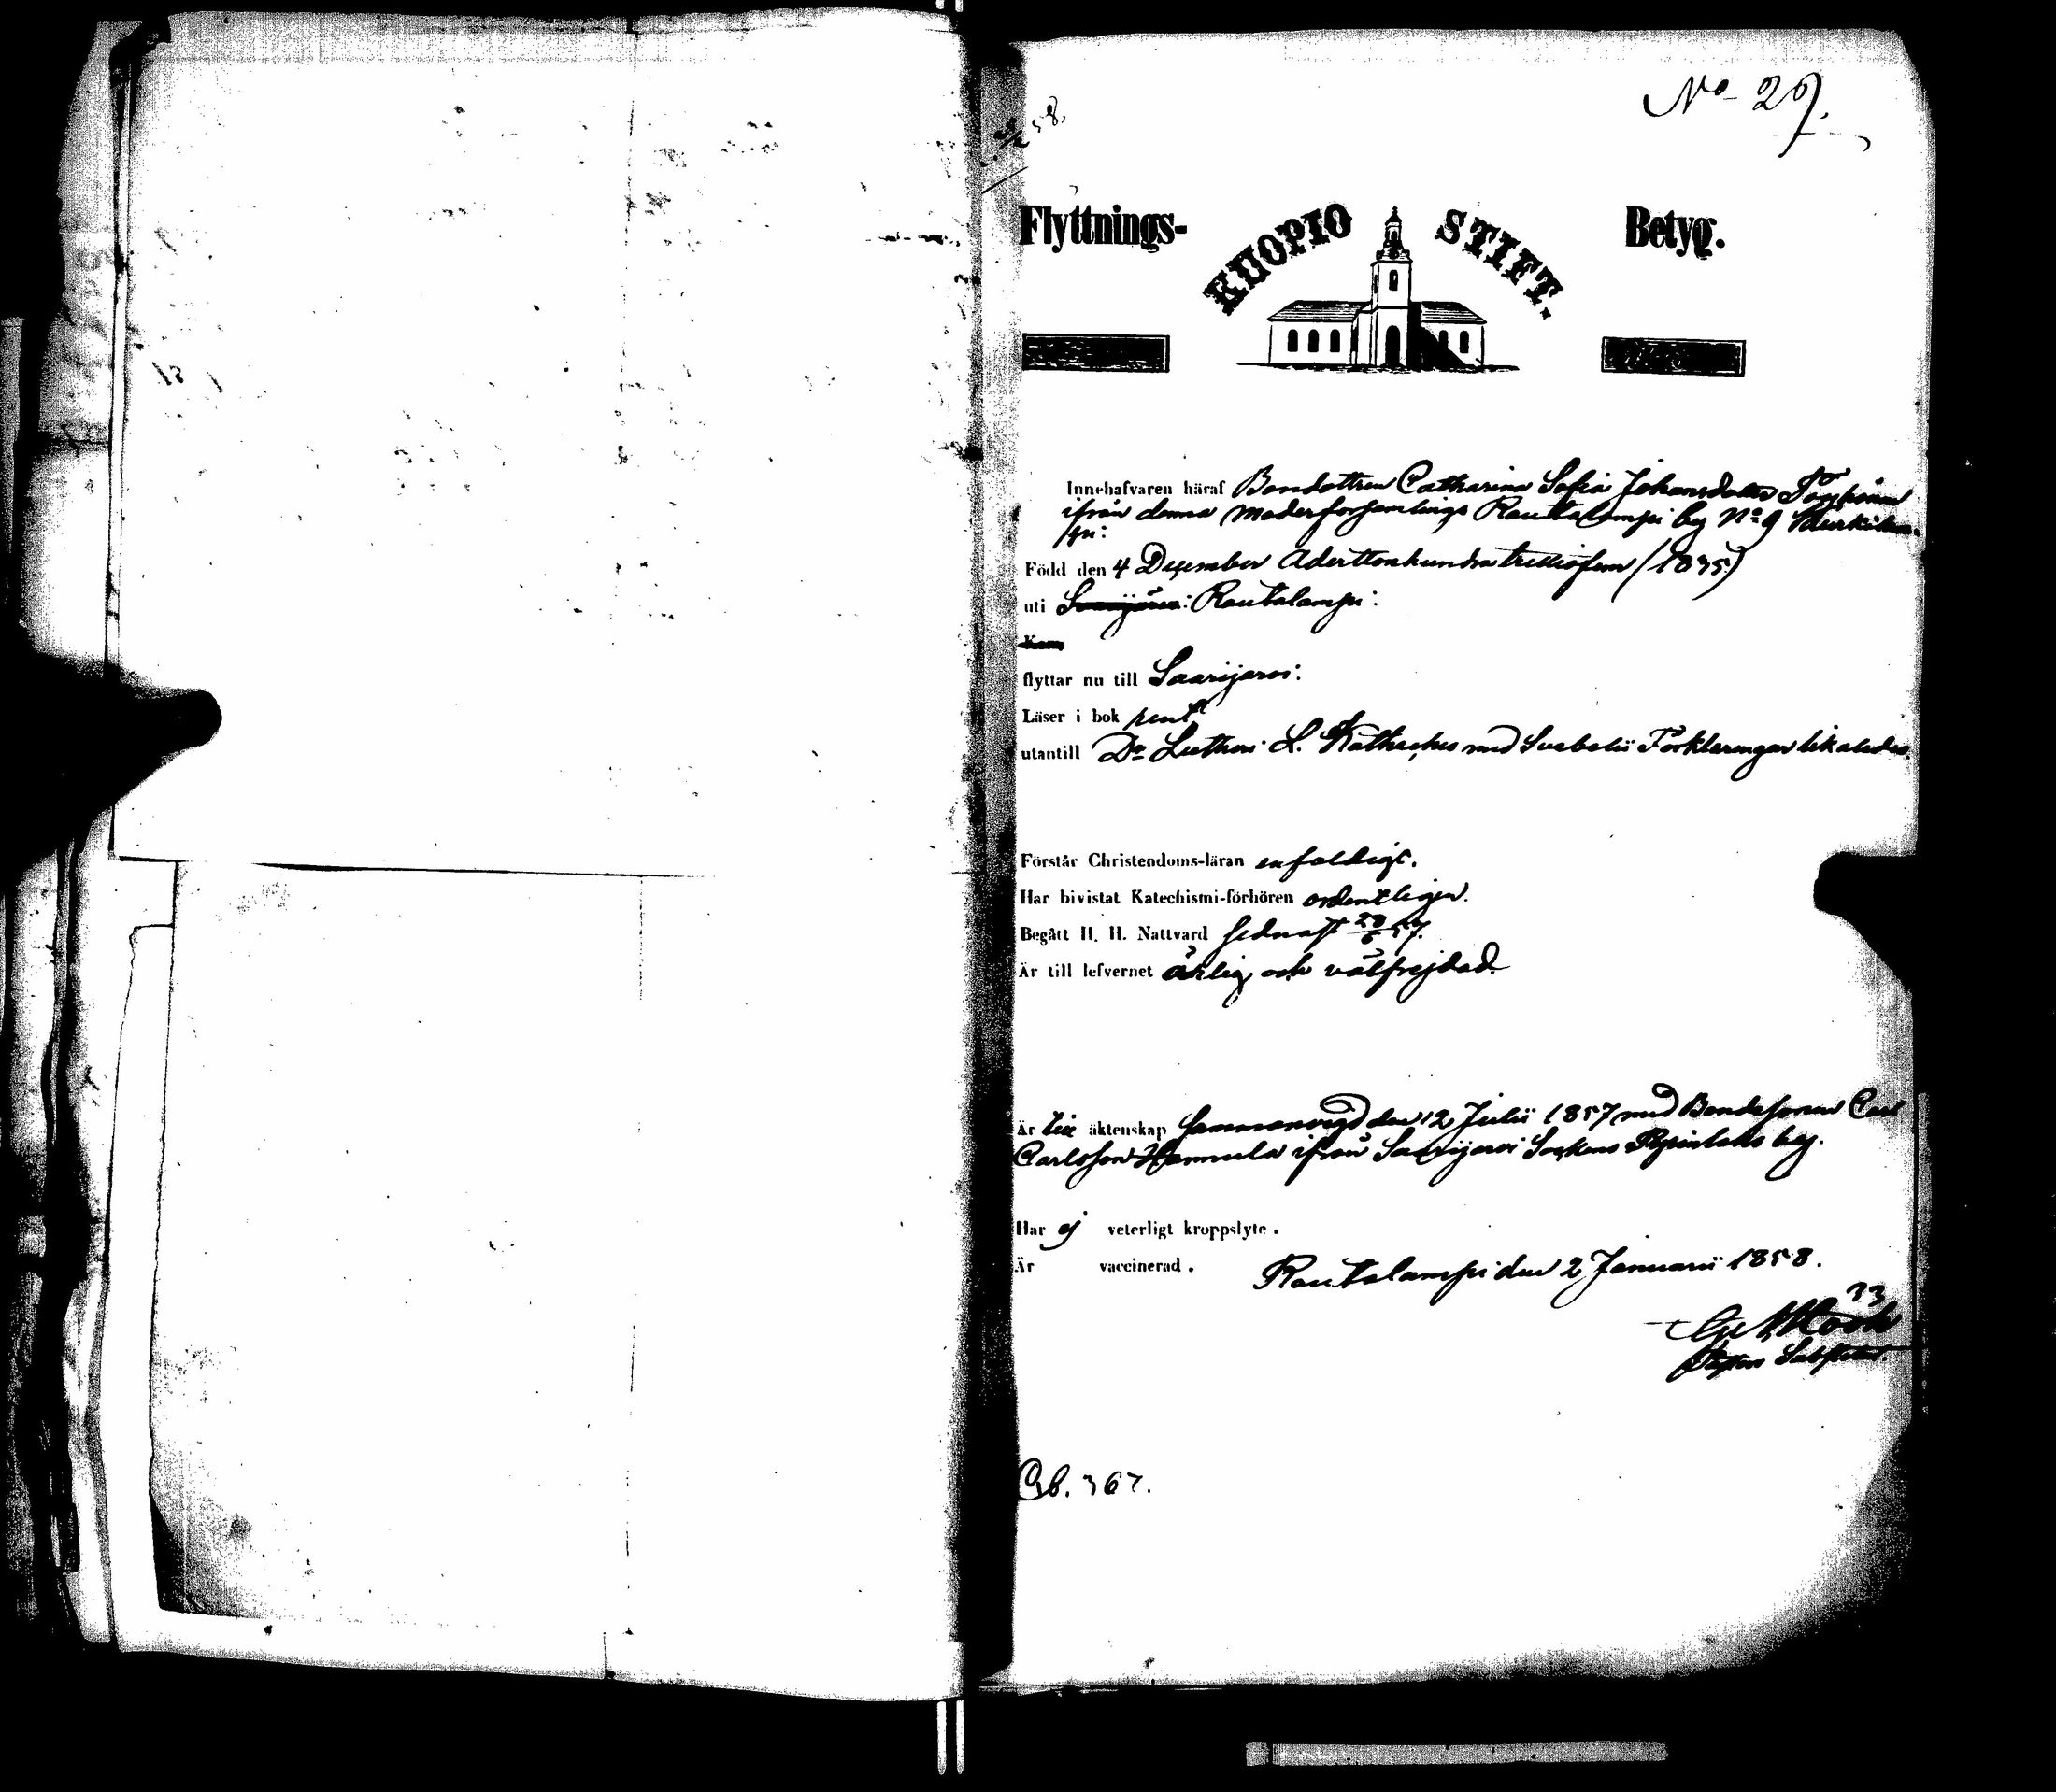 No 29.
3/2 58.
Flyttnings- KUOPIO STIFT. Betyg.
Innehafvaren häraf Bondottren Catharina Sofia Johansdotter
ifrån denna moderförsamlings Rautalampi by No 9
Född den 4 December Adertonhundratrettiofem (1835)
uti Saarijärvi: Rautalampi:
Kom
flyttar nu till Saarijärvi:
Läser i bok rent
utantill Dr Lutheri L. Katheches med Svebelii Förklaringar likaledes.
Förstår Christendoms-läran enfaldigt.
Har bivistat Katechismi-förhören ordentligen.
Begått H. H. Nattvard sednast 28/6 57.
Är till lefvernet ärlig och välfrejdad.
Är till äktenskap sammanvigd den 12 Julii 1857 med Bondesonen Carl
Carlsson Hannula ifrån Saarijärvi Sockens by.
Har ej veterligt kroppslyte.
Är vaccinerad. Rautalampi den 2 Januarii 1858.
33
Cb. 367.